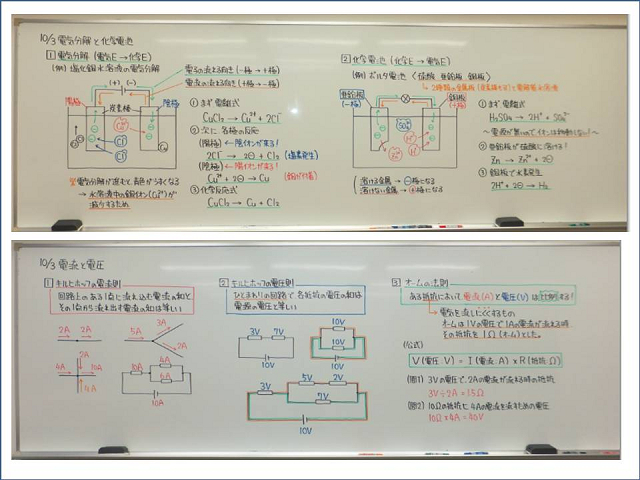 10/3 電気分解と化学電池
1 電気分解 (電気E→化学E)
(例) 塩化銅水溶液の電気分解
電子の流れる向き(−極→+極)
電流の流れる向き(+極→−極)
(+) (−)
陽極 炭素棒 陰極
Cu²⁺
Cl⁻
Cl⁻
※電気分解が進むと、青色がうすくなる
→水溶液中の銅イオン(Cu²⁺)が
減少するため
① まず電離式
CuCl₂ → Cu²⁺ + 2Cl⁻
② 次に各極の反応
(陽極) ←陰イオンが来る!
2Cl⁻ → 2⊖ + Cl₂ (塩素発生)
(陰極) ←陽イオンが来る!
Cu²⁺ + 2⊖ → Cu (銅が付着)
③ 化学反応式
CuCl₂ → Cu + Cl₂
2 化学電池 (化学E→電気E)
(例) ボルタ電池 (硫酸 亜鉛板 銅板)
亜鉛板
(−極)
銅板
(+極)
SO₄²⁻
Zn²⁺
H⁺
H⁺
溶ける金属 → ⊖極になる
溶けない金属 → ⊕極になる
① まず電離式
H₂SO₄ → 2H⁺ + SO₄²⁻
② 亜鉛板が硫酸に溶ける!
Zn → Zn²⁺ + 2⊖
③ 銅板で水素発生
2H⁺ + 2⊖ → H₂
10/3 電流と電圧
1 キルヒホッフの電流則
回路上のある1点に流れ込む電流の和と
その1点から流れ出す電流の和は等しい
2A 2A
5A 3A 2A
2A 4A 2A 4A
10A 4A 6A 10A
2 キルヒホッフの電圧則
ひとまわりの回路で、各抵抗の電圧の和は
電源の電圧と等しい
3V 7V
10V
10V
10V
10V
3V 5V 2V
7V
10V
3 オームの法則
ある抵抗において、電流(A)と電圧(V)は比例する!
電気を流しにくくするもの
オームは1Vの電圧で1Aの電流が流れる時、
その抵抗を1Ω(オーム)とした。
(公式)
V(電圧 V) = I(電流 A) × R(抵抗 Ω)
(例1) 3Vの電圧で、2Aの電流が流れる時の抵抗
3V÷2A=1.5Ω
(例2) 10Ωの抵抗に4Aの電流を流すための電圧
10Ω×4A=40V